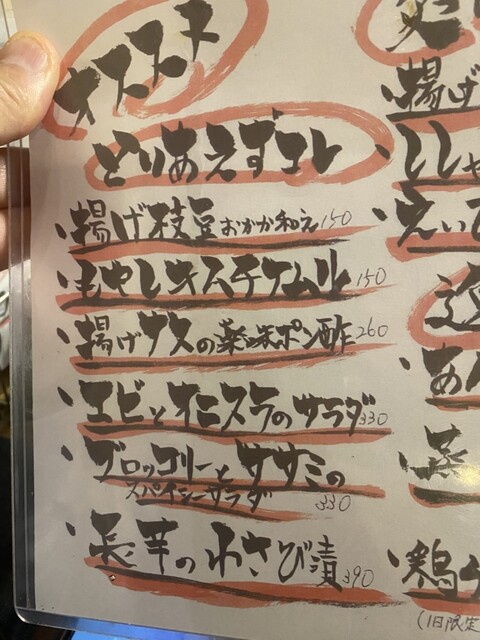 オススメ
とりあえずコレ
・揚げ枝豆おかか和え 150
・もやしキムチナムル 150
・揚げナスの薬味ポン酢 260
・エビとオニスラのサラダ 330
・ブロッコリーとササミの
スパイシーサラダ 330
・長芋のわさび漬 390
揚げ
・ししゃ
・えい
・蒸
・鶏
(1日限定